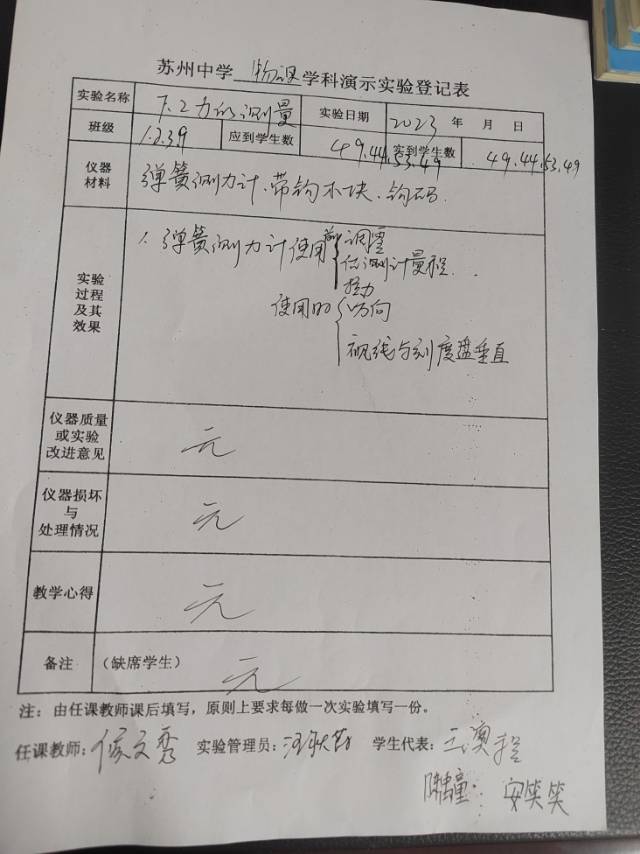 苏州中学 物理 学科演示实验登记表
实验名称 7.2力的测量 实验日期 2023 年 月 日
班级 1.2.3.9 应到学生数 49.44.53.49 实到学生数 49.44.53.49
仪器材料 弹簧测力计、带钩木块、钩码
实验过程及其效果
1. 弹簧测力计使用前 调零
估测计量程
使用时 拉力
方向
视线与刻度盘垂直
仪器质量或实验改进意见 无
仪器损坏与处理情况 无
教学心得 无
备注 (缺席学生) 无
注：由任课教师课后填写，原则上要求每做一次实验填写一份。
任课教师：侯文秀 实验管理员： 学生代表：
安笑笑